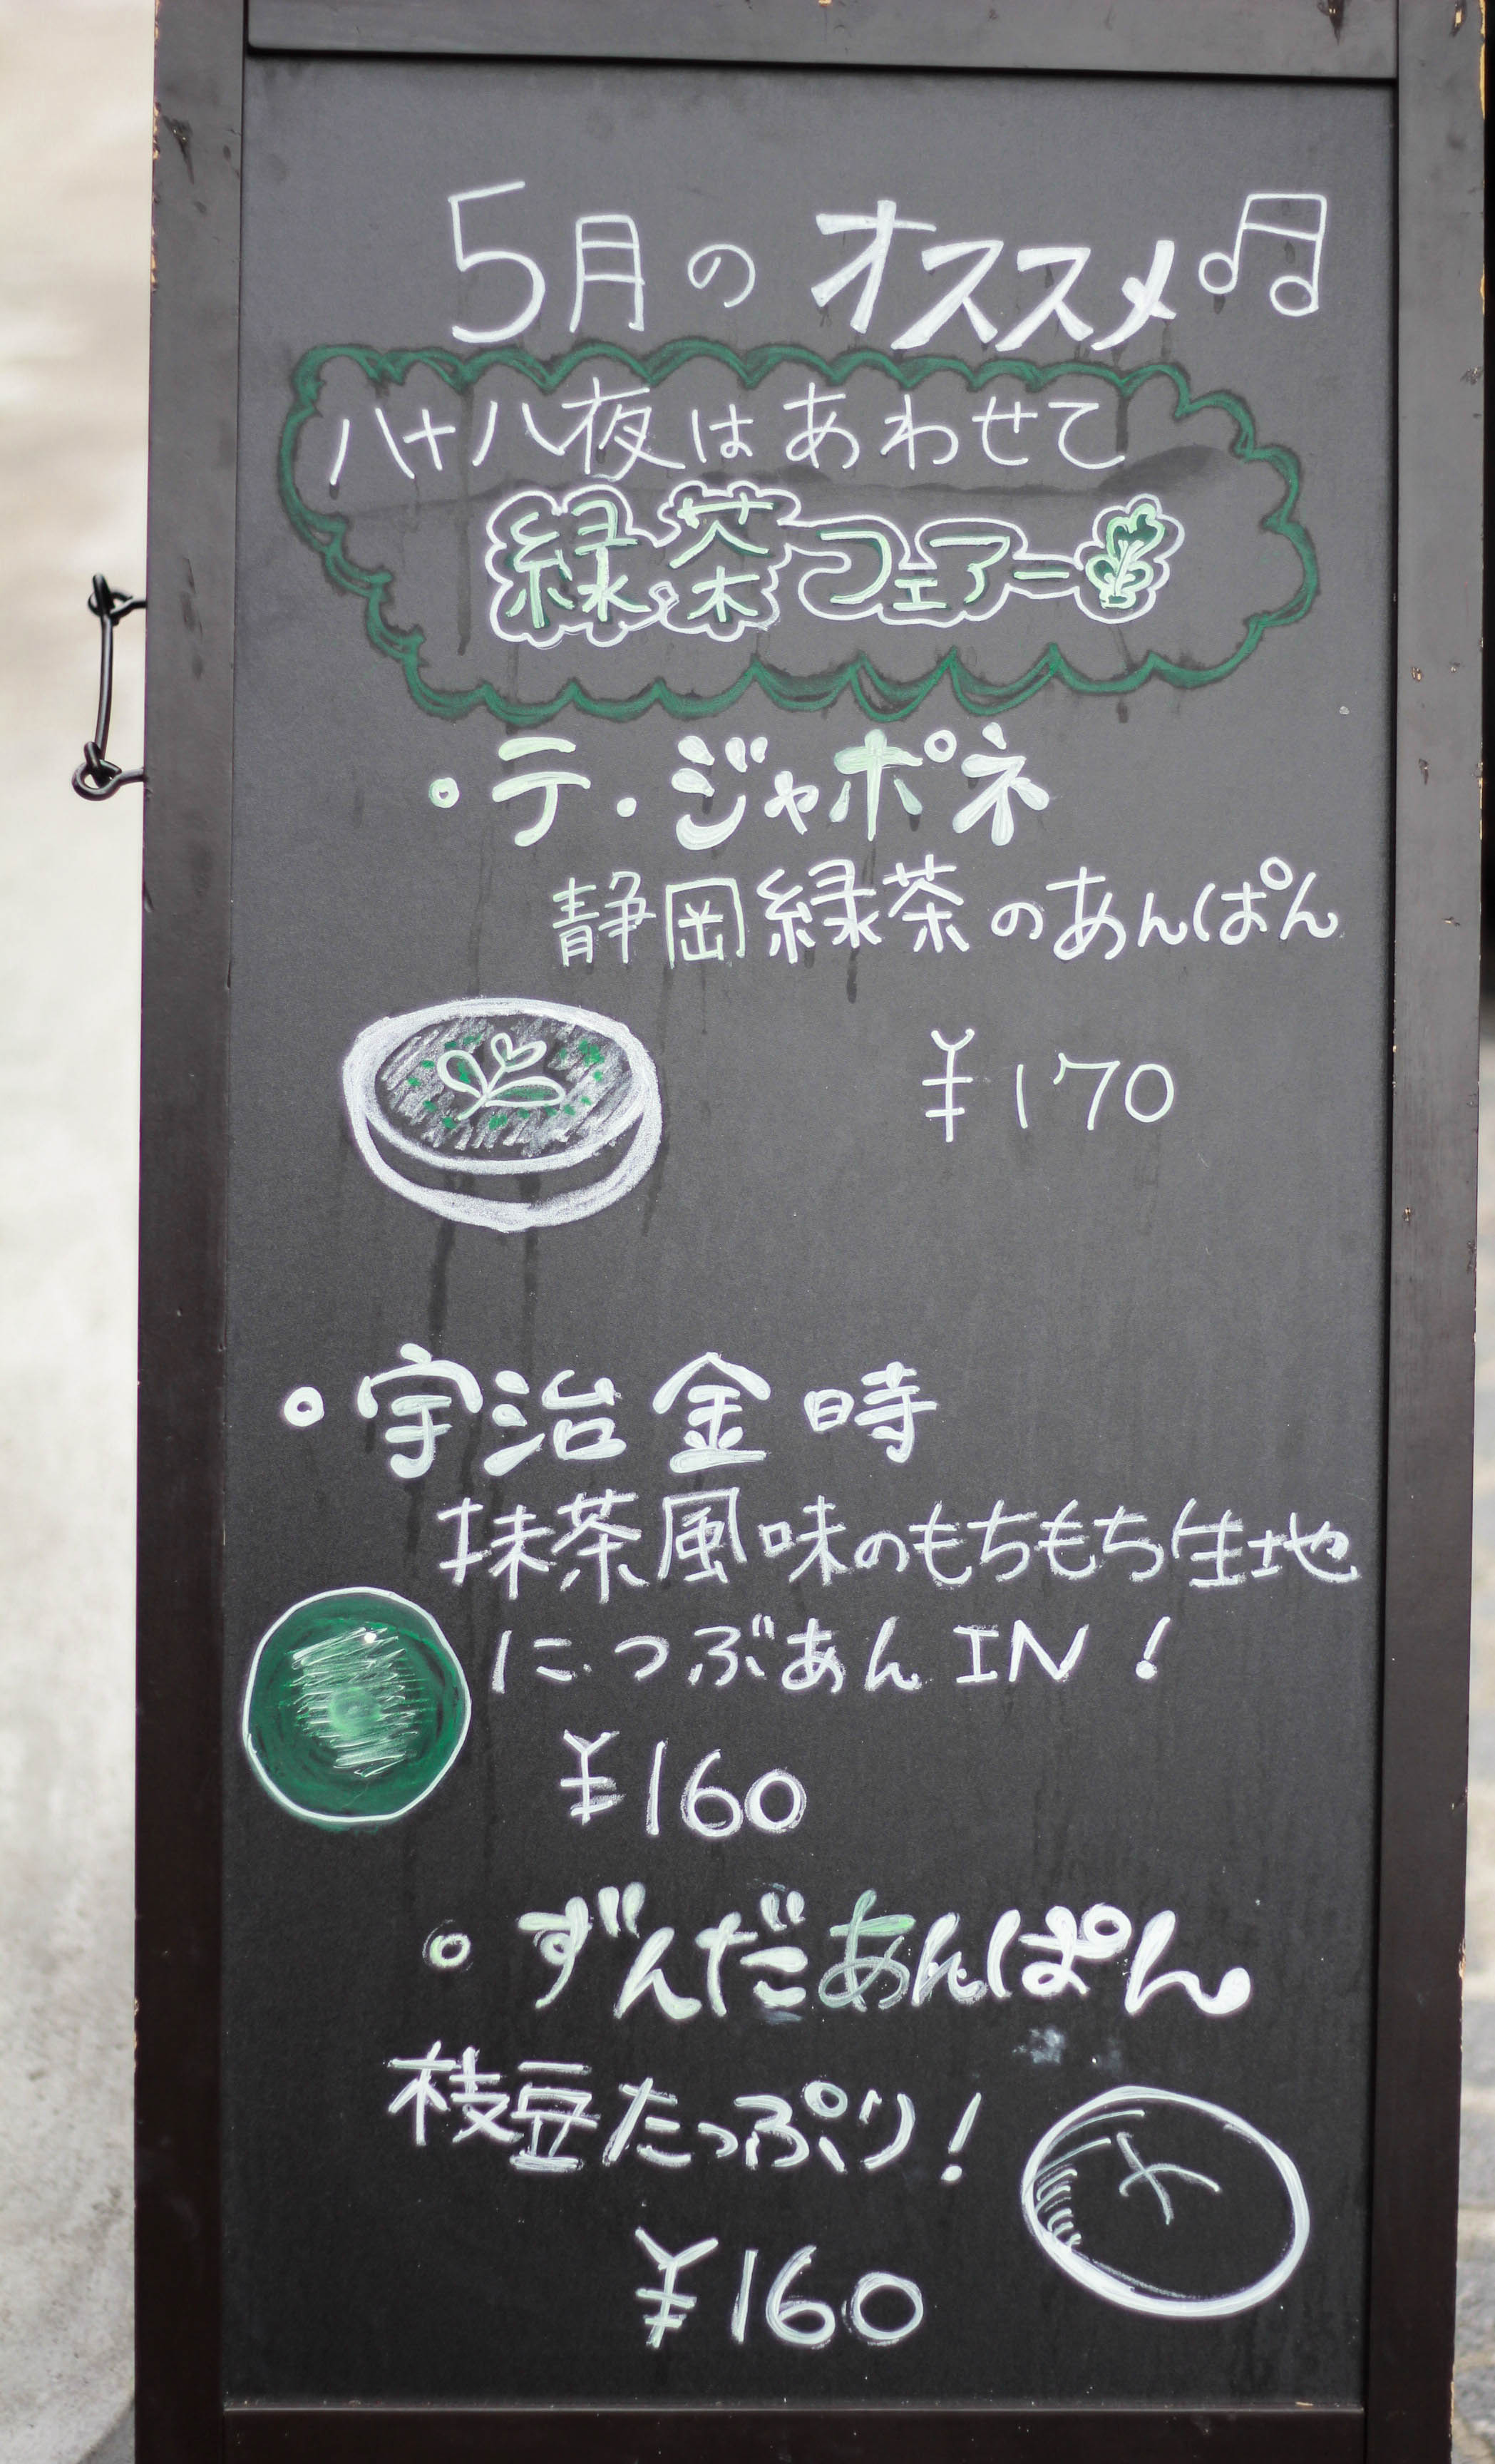 5月のオススメ♫
八十八夜はあわせて
緑茶フェアー
・テ・ジャポネ
静岡緑茶のあんぱん
¥170
・宇治金時
抹茶風味のもちもち生地
につぶあんIN!
¥160
・ずんだあんぱん
枝豆たっぷり!
¥160